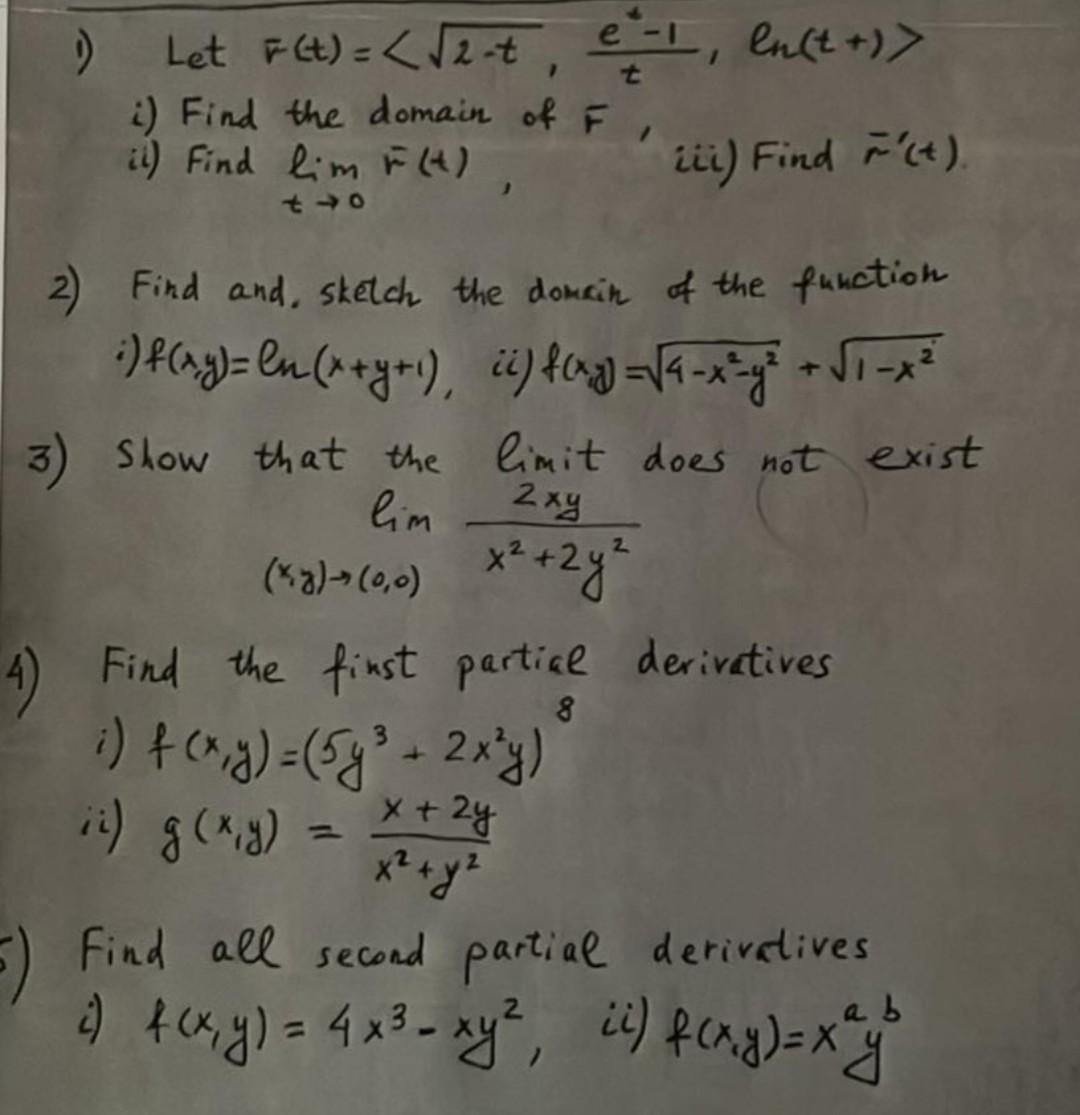 1) Let r̄(t) = <√2-t , e^t-1 / t , ln(t+)>
i) Find the domain of r̄ ,
ii) Find lim t→0 r̄(t) , iii) Find r̄'(t).
2) Find and, sketch the domain of the function
i) f(x,y) = ln(x+y+1), ii) f(x,y) = √4-x²-y² + √1-x²
3) Show that the limit does not exist
lim (x,y)→(0,0) 2xy / x²+2y²
4) Find the first partial derivatives
i) f(x,y) = (5y³ + 2x²y)⁸
ii) g(x,y) = x+2y / x²+y²
5) Find all second partial derivatives
i) f(x,y) = 4x³ - xy², ii) f(x,y) = x^a y^b